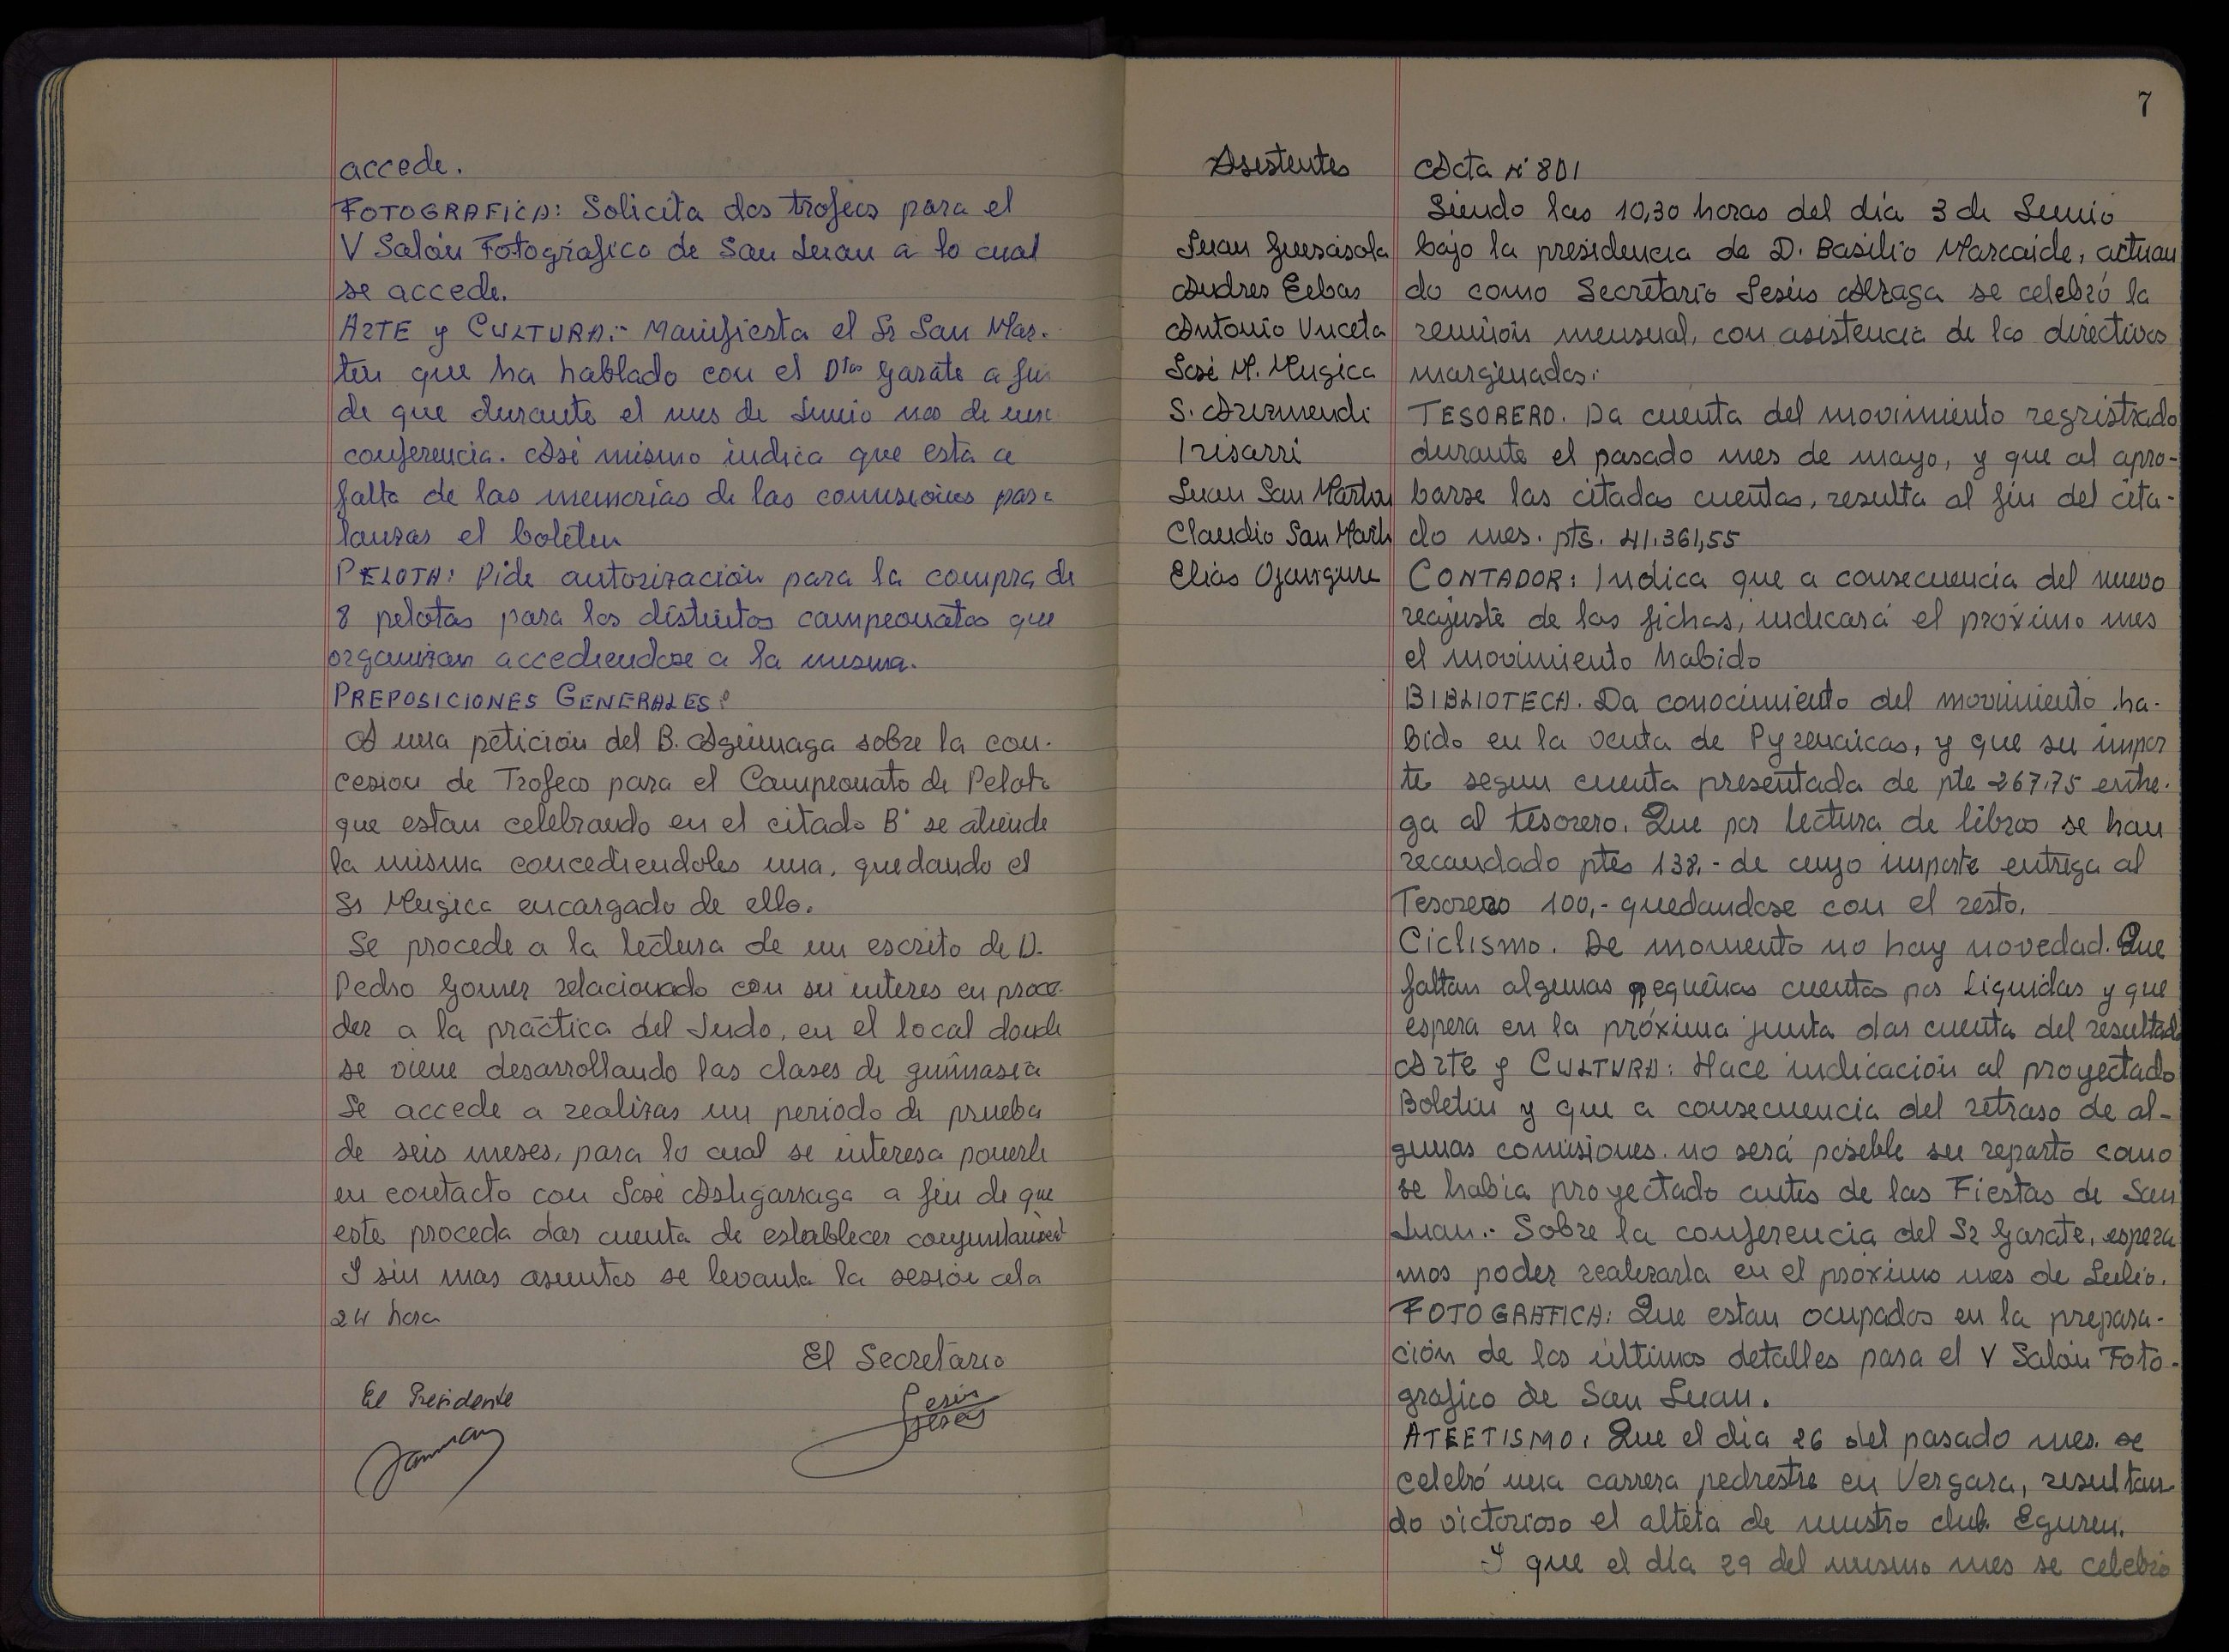 accede.
FOTOGRAFICA: Solicita dos trofeos para el
V Salón Fotografico de San Juan a lo cual
se accede.
ARTE y CULTURA:- Manifiesta el Sr San Mar-
tin que ha hablado con el garate a fin
de que durante el mes de Junio nos de una
conferencia. Asi mismo indica que esta a
falta de las memorias de las comisiones para
lanzar el boletin
PELOTA: Pide autorización para la compra de
8 pelotas para los distintos campeonatos que
organizan accediendose a la misma.
PREPOSICIONES GENERALES:
A una petición del B. Aguinaga sobre la con-
cesion de Trofeos para el Campeonato de Pelota
que estan celebrando en el citado Bº se atiende
la misma concediendoles una, quedando el
Sr Mugica encargado de ello.
Se procede a la lectura de un escrito de D.
Pedro Gomez relacionado con su interes en proce-
der a la práctica del Judo, en el local donde
se viene desarrollando las clases de gimnasia
Se accede a realizar un periodo de prueba
de seis meses, para lo cual se interesa ponerle
en contacto con José Astigarraga a fin de que
este proceda dar cuenta de establecer conjuntament
I sin mas asuntos se levanta la sesión a la
24 hora
El Secretario
El Presidente
Jesús
7
Asistentes
Juan Guisasola
Andres Eibar
Antonio Unceta
José M. Mugica
S. Arizmendi
Irisarri
Juan San Martin
Claudio San Marti
Elias Ojanguren
Acta Nº 801
Siendo las 10,30 horas del dia 3 de Junio
bajo la presidencia de D. Basilio Marcaide, actuan
do como Secretario Jesús Alzaga se celebró la
reunión mensual, con asistencia de los directivos
marginados:
TESORERO. Da cuenta del movimiento regristrado
durante el pasado mes de mayo, y que al apro-
barse las citadas cuentas, resulta al fin del cita-
do mes. pts. 41.361,55
CONTADOR: Indica que a consecuencia del nuevo
reajuste de las fichas, indicará el próximo mes
el movimiento habido
BIBLIOTECA. Da conocimiento del movimiento ha-
bido en la venta de Pyrenaicas, y que su impor
te segun cuenta presentada de pte 267,75 entre-
ga al tesorero. Que por lectura de libros se han
recaudado ptes 138,- de cuyo importe entrega al
Tesorero 100,- quedandose con el resto.
Ciclismo. De momento no hay novedad. Que
faltan algunas pequeñas cuentas por liquidar y que
espera en la próxima junta dar cuenta del resultado
Arte y CULTURA: Hace indicación al proyectado
Boletin y que a consecuencia del retraso de al-
gunas comisiones. no será posible su reparto como
se habia proyectado antes de las Fiestas de San
Juan.- Sobre la conferencia del Sr Garate, espera
mos poder realizarla en el próximo mes de Julio.
FOTOGRAFICA: Que estan ocupados en la prepara-
ción de los últimos detalles para el V Salón Foto-
grafico de San Juan.
ATLETISMO: Que el dia 26 del pasado mes. se
celebró una carrera pedrestre en Vergara, resultan-
do victorioso el alteta de nuestro club. Eguren.
I que el día 29 del mismo mes se celebró